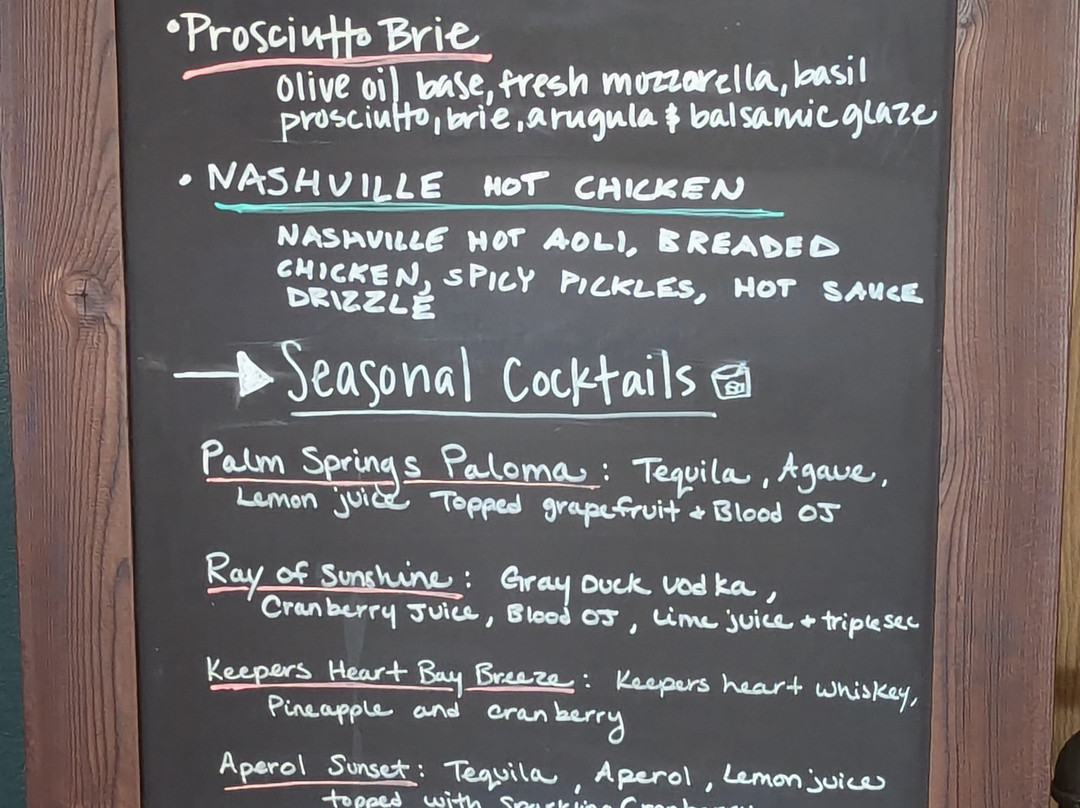 •Prosciutto Brie
olive oil base, fresh mozzarella, basil
prosciutto, brie, arugula & balsamic glaze
• NASHVILLE HOT CHICKEN
NASHVILLE HOT AOLI, BREADED
CHICKEN, SPICY PICKLES, HOT SAUCE
DRIZZLE
Seasonal Cocktails
Palm Springs Paloma: Tequila, Agave,
Lemon juice Topped grapefruit + Blood OJ
Ray of Sunshine: Gray Duck vodka,
Cranberry Juice, Blood OJ, Lime juice + triple sec
Keepers Heart Bay Breeze: Keepers heart whiskey,
Pineapple and cranberry
Aperol Sunset: Tequila, Aperol, Lemon juice
topped with Sparkling Cranberry